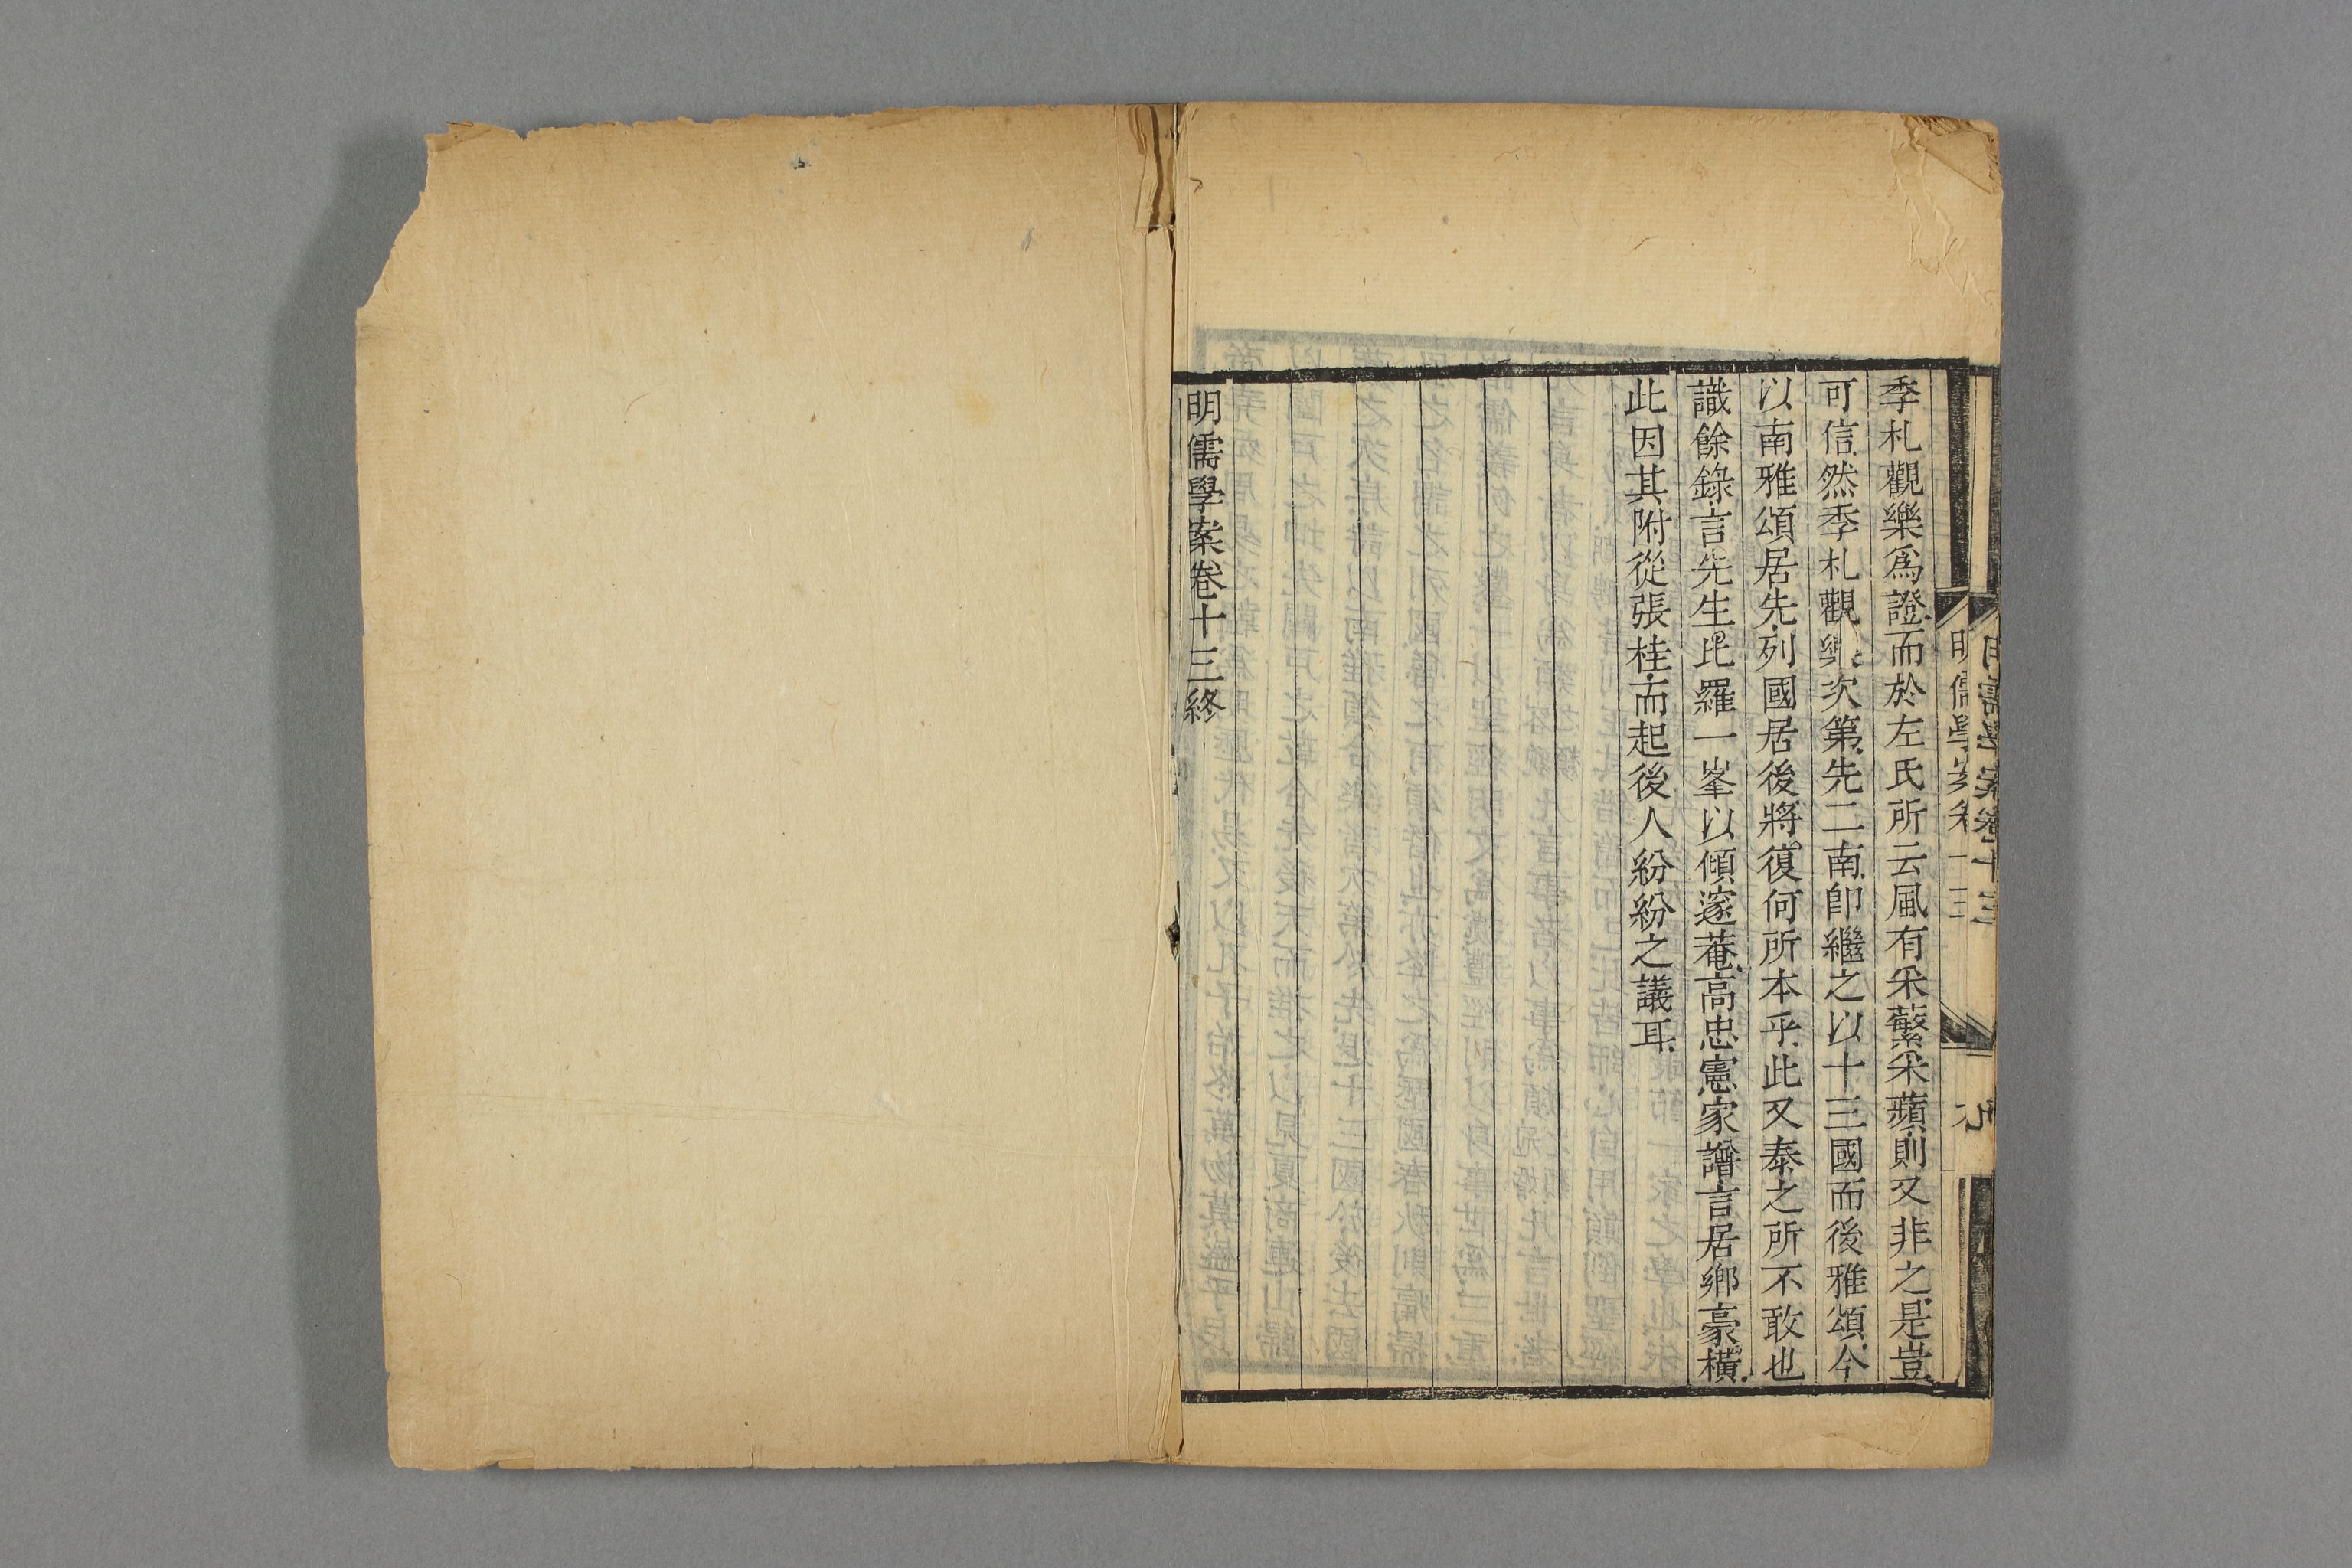 季札觀樂爲證而於左氏所云風有采蘩采蘋則又非之是豈
可信然季札觀樂次第先二南卽繼之以十三國而後雅頌今
以南雅頌居先列國居後將復何所本乎此又泰之所不敢也
識餘錄言先生比羅一峯以傾邃菴高忠憲家譜言居鄉豪橫
此因其附從張桂而起後人紛紛之議耳
明儒學案卷十三終
明儒學案卷十三